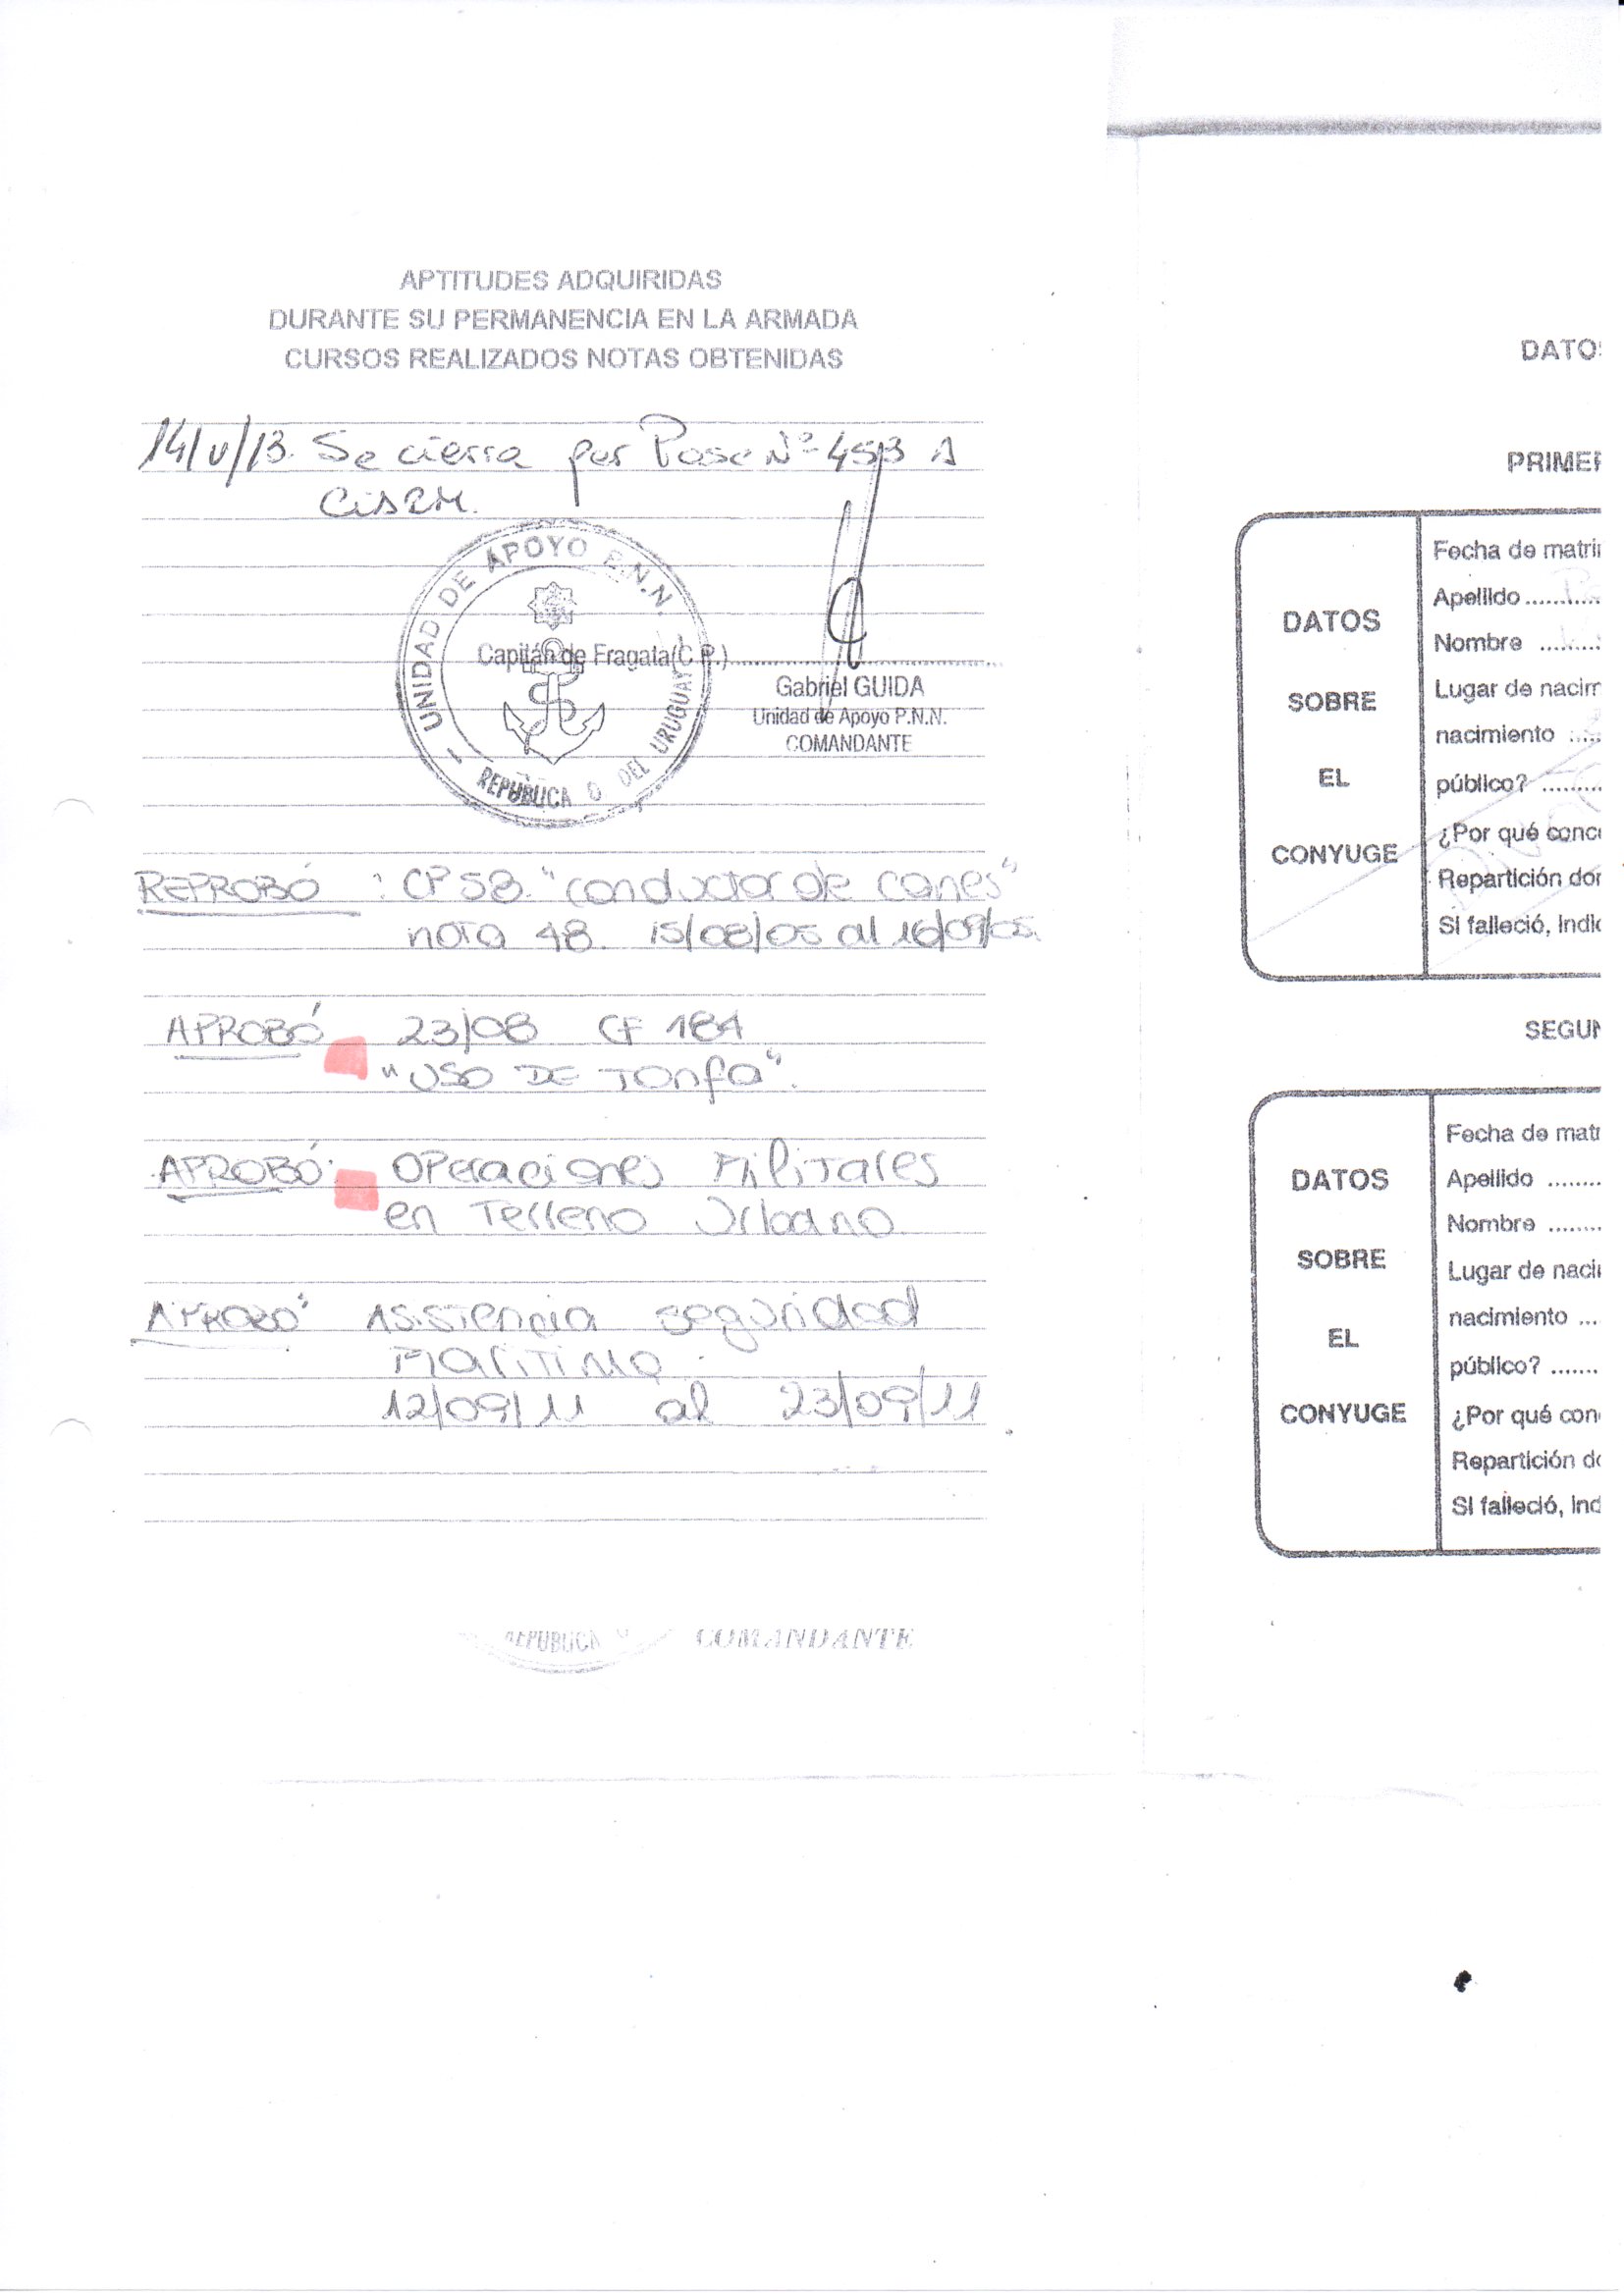 APTITUDES ADQUIRIDAS
DURANTE SU PERMANENCIA EN LA ARMADA
CURSOS REALIZADOS NOTAS OBTENIDAS
14/V/13. Se cierra por Pase Nº 45/13 A
CISEM.
UNIDAD DE APOYO P.N.N.
REPÚBLICA O DEL URUGUAY
Capitán de Fragata(C.P.)
Gabriel GUIDA
Unidad de Apoyo P.N.N.
COMANDANTE
REPROBÓ : CP 58 "conductor de canes"
nota 48. 15/08/05 al 16/09/05.
APROBÓ 23/08 CF 184
"USO DE Tonfa".
APROBÓ: Operaciones Militares
en Terreno Urbano
APROBÓ Asistencia seguridad
Maritima
12/09/11 al 23/09/11
REPUBLICA
COMANDANTE
DATO
PRIMER
DATOS
SOBRE
EL
CONYUGE
Fecha de matri
Apellido
Nombre
Lugar de nacim
nacimiento
público?
¿Por qué conc
Repartición don
Si falleció, indic
SEGUN
DATOS
SOBRE
EL
CONYUGE
Fecha de matr
Apellido
Nombre
Lugar de naci
nacimiento
público?
¿Por qué con
Repartición do
Si falleció, ind